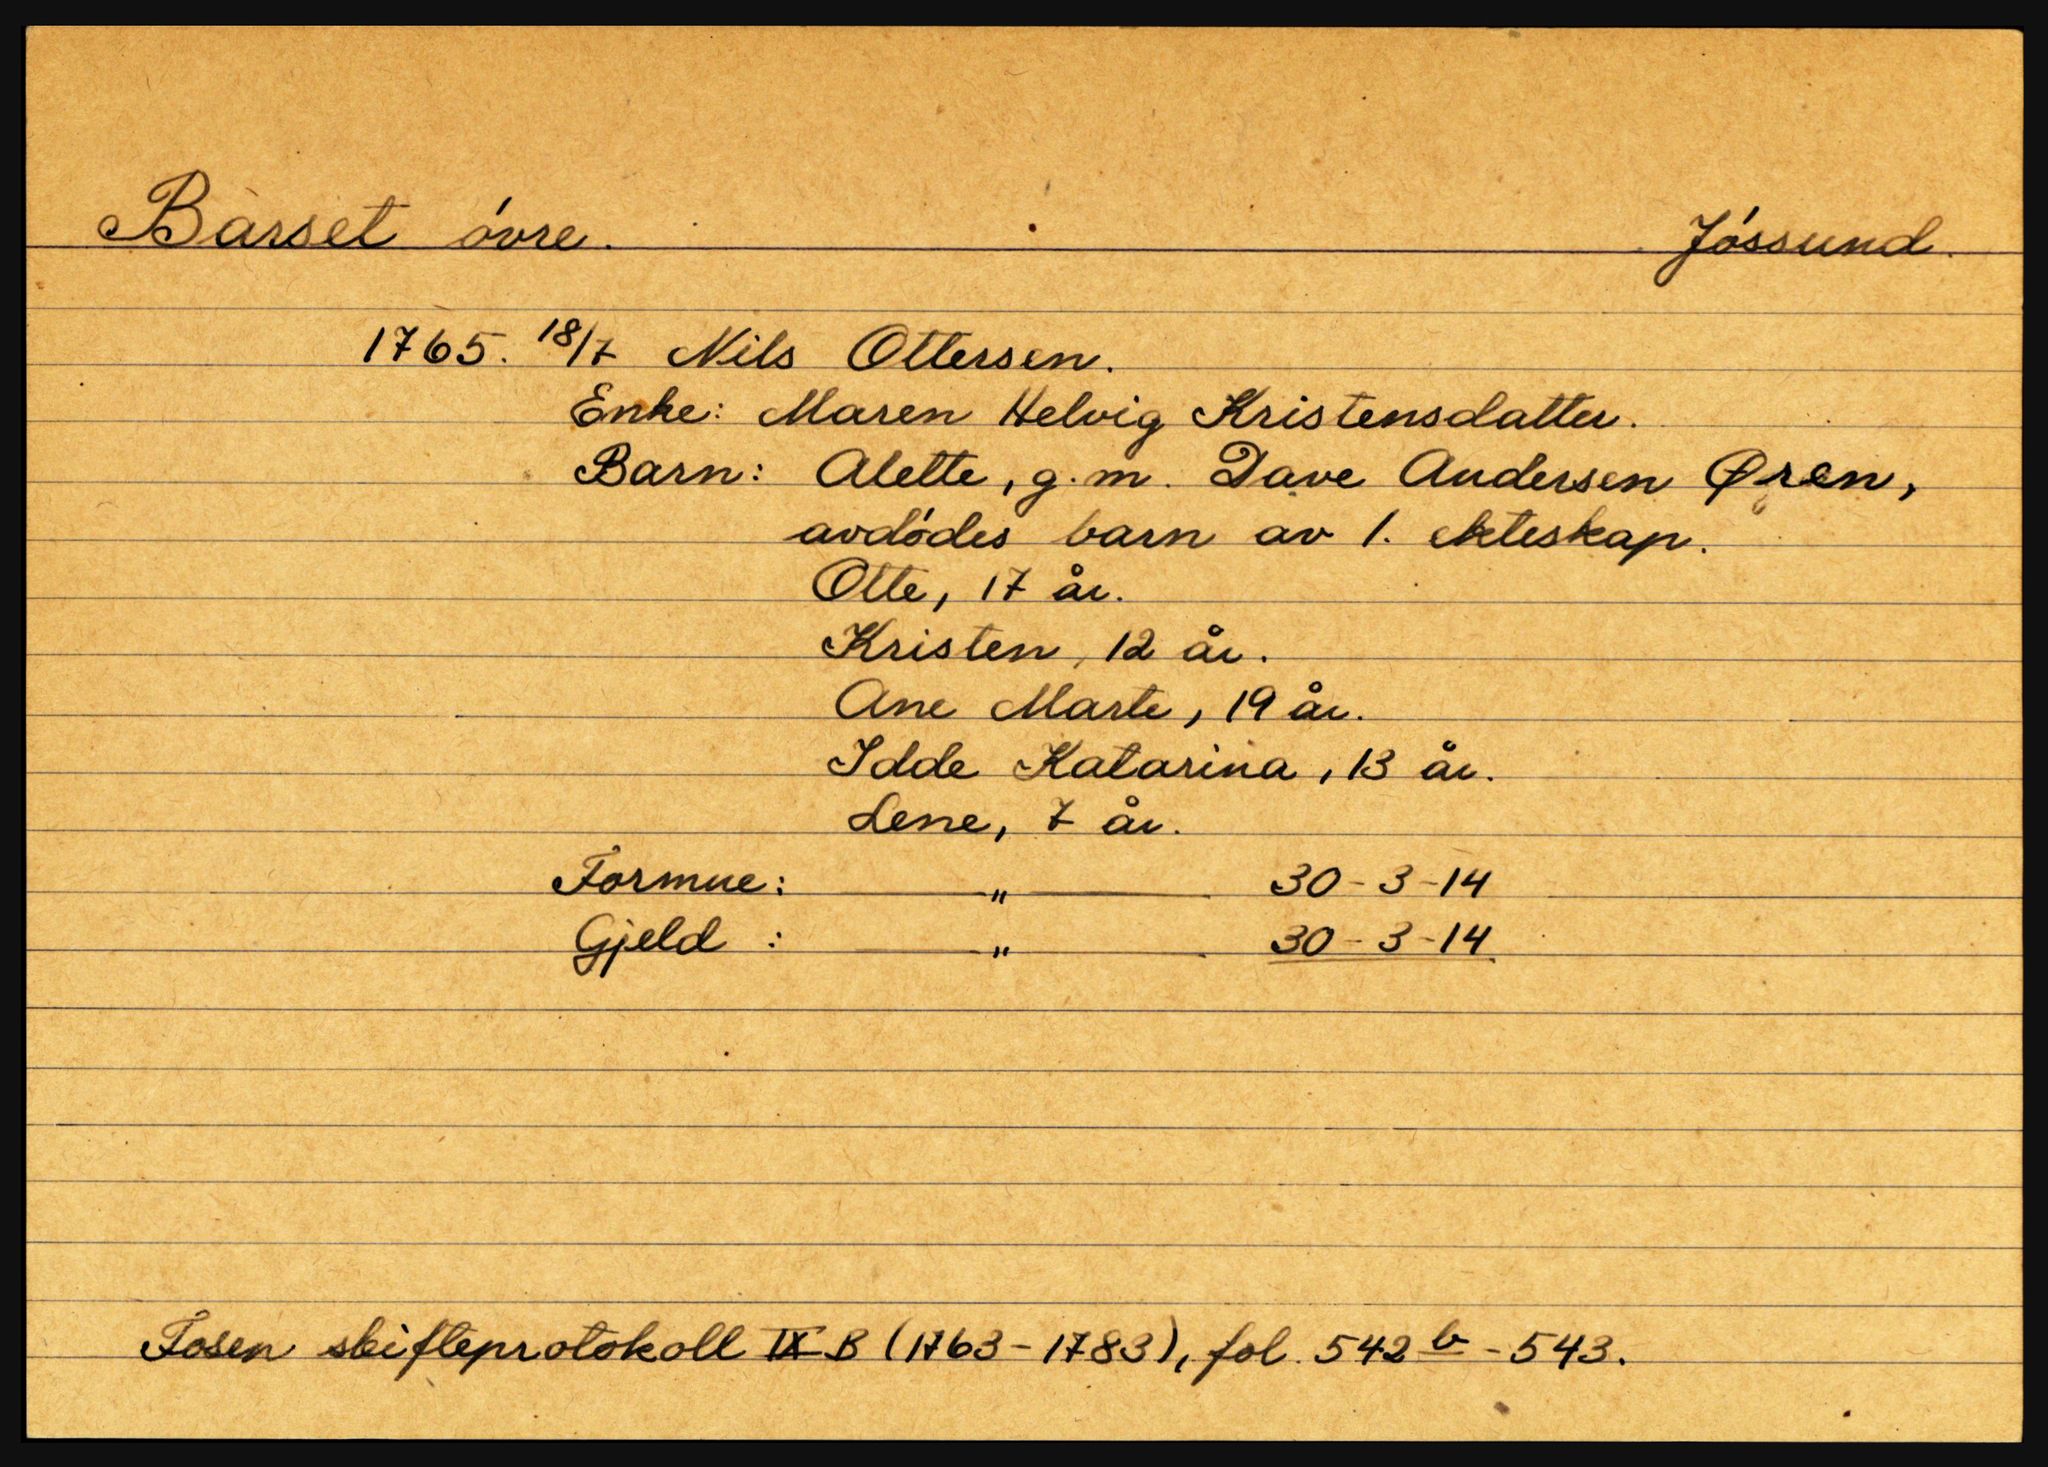 Barset óvre. Jóssund.
1765. 18/7 Nils Ottersen.
Enke: Maren Helvig Kristensdatter.
Barn: Alette, g.m. Dave Andersen Øren,
avdódes barn av 1. ekteskap.
Otte, 17 år.
Kristen, 12 år.
Ane Marte, 19 år.
Idde Katarina, 13 år.
Lene, 7 år.
Formue: — " — 30-3-14
Gjeld : — " — 30-3-14.
Fosen skifteprotokoll IX B (1763-1783), fol. 542 b - 543.